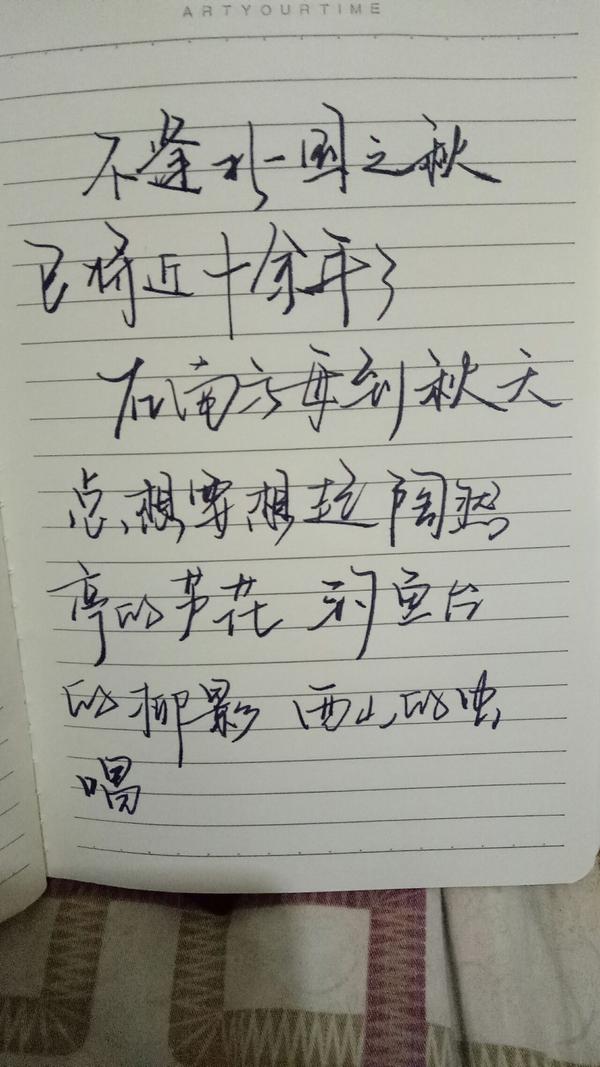 ARTYOURTIME
不逢北国之秋
已将近十余年了
在南方每到秋天
总想要想起陶然
亭的芦花 钓鱼台
的柳影 西山的虫
唱